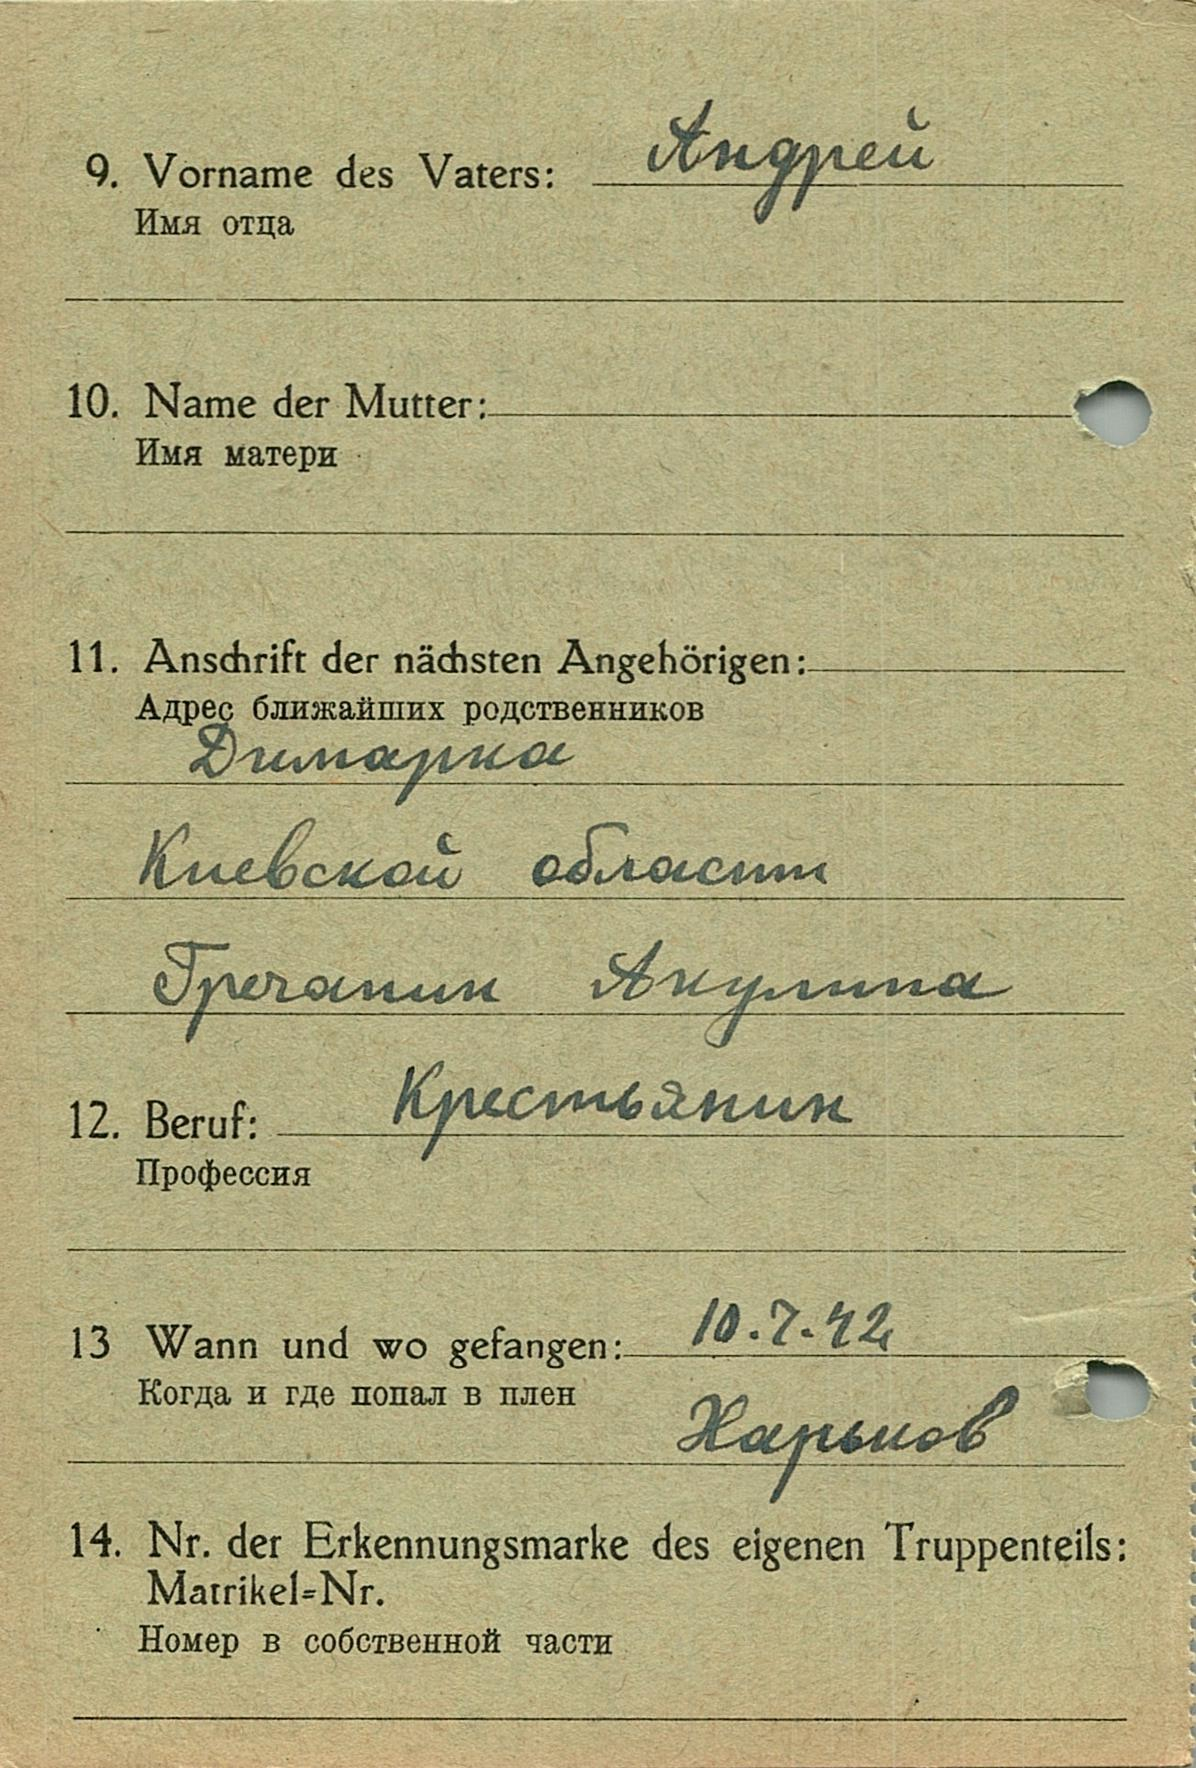 Андрей
9. Vorname des Vaters:
Имя отца
10. Name der Mutter:
Имя матери
11. Anschrift der nächsten Angehörigen:
Адрес ближайших родственников
Димарка
Киевской области
Гречаник Акулина
Крестьянин
12. Beruf:
Профессия
13 Wann und wo gefangen: 10.7.42
Когда и где попал в плен
Харьков
14. Nr. der Erkennungsmarke des eigenen Truppenteils:
Matrikel=Nr.
Номер в собственной части